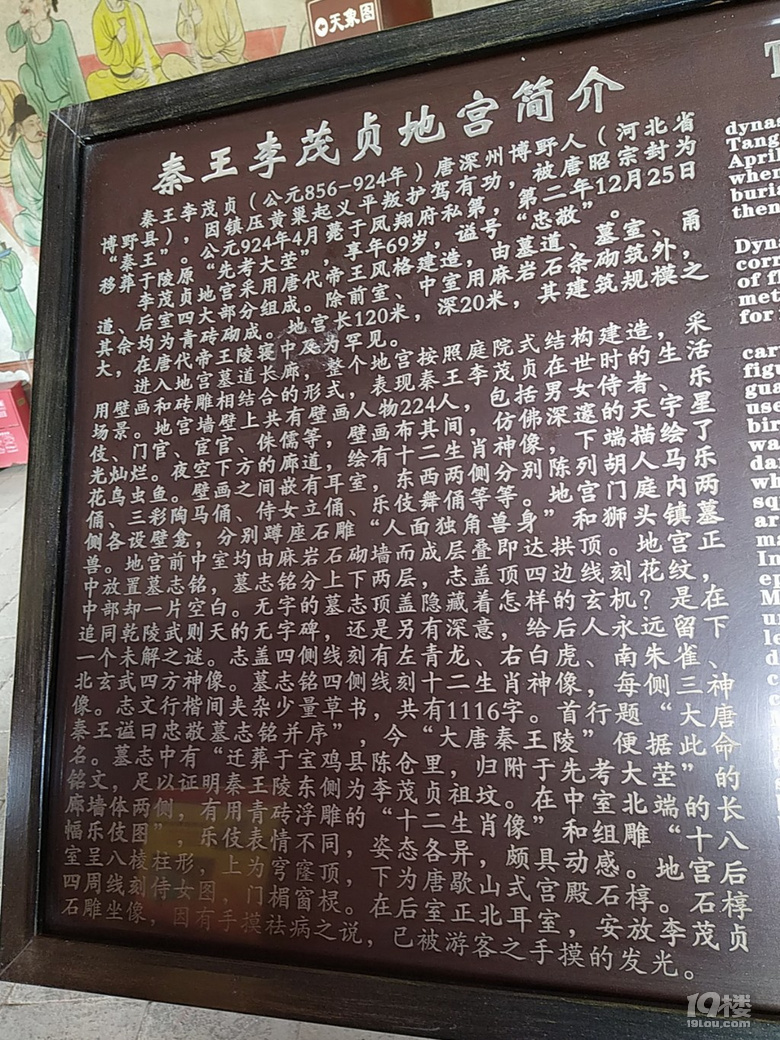 天象图
秦王李茂贞地宫简介
秦王李茂贞（公元856-924年）唐深州博野人（河北省
博野县），因镇压黄巢起义平叛护驾有功，被唐昭宗封为
“秦王”。公元924年4月薨于凤翔府私第，第二年12月25日
移葬于陵原“先考大茔”，享年69岁，谥号“忠敬”。
李茂贞地宫采用唐代帝王风格建造，由墓道、墓室、甬
道、后室四大部分组成。除前室、中室用麻岩石条砌筑外，
其余均为青砖砌成。地宫长120米，深20米，其建筑规模之
大，在唐代帝王陵寝中及为罕见。
进入地宫墓道长廊，整个地宫按照庭院式结构建造，采
用壁画和砖雕相结合的形式，表现秦王李茂贞在世时的生活
场景。地宫墙壁上共有壁画人物224人，包括男女侍者、乐
伎、门官、宦官、侏儒等，壁画布其间，仿佛深邃的天宇星
光灿烂。夜空下方的廊道，绘有十二生肖神像，下端描绘了
花鸟虫鱼。壁画之间嵌有耳室，东西两侧分别陈列胡人马乐
俑、三彩陶马俑、侍女立俑、乐伎舞俑等等。地宫门庭内两
侧各设壁龛，分别蹲座石雕“人面独角兽身”和狮头镇墓
兽。地宫前中室均由麻岩石砌墙而成层叠即达拱顶。地宫正
中放置墓志铭，墓志铭分上下两层，志盖顶四边线刻花纹，
中部却一片空白。无字的墓志顶盖隐藏着怎样的玄机？是在
追同乾陵武则天的无字碑，还是另有深意，给后人永远留下
一个未解之谜。志盖四侧线刻有左青龙、右白虎、南朱雀、
北玄武四方神像。墓志铭四侧线刻十二生肖神像，每侧三神
像。志文行楷间夹杂少量草书，共有1116字。首行题“大唐
秦王谥曰忠敬墓志铭并序”，今“大唐秦王陵”便据此命
名。墓志中有“迁葬于宝鸡县陈仓里，归附于先考大茔”的
铭文，足以证明秦王陵东侧为李茂贞祖坟。在中室北端的长
廊墙体两侧，有用青砖浮雕的“十二生肖像”和组雕“十八
幅乐伎图”，乐伎表情不同，姿态各异，颇具动感。地宫后
室呈八棱柱形，上为穹窿顶，下为唐歇山式宫殿石椁。石椁
四周线刻侍女图，门楣窗棂。在后室正北耳室，安放李茂贞
石雕坐像，因有手摸祛病之说，已被游客之手摸的发光。
T
dynas
Tang
April
when
buri
then
Dyn
corr
of f
met
for
car
figu
gua
use
bir
wa
da
wh
sq
an
ma
In
ep
M
u
l
d
c
c
19楼
19lou.com